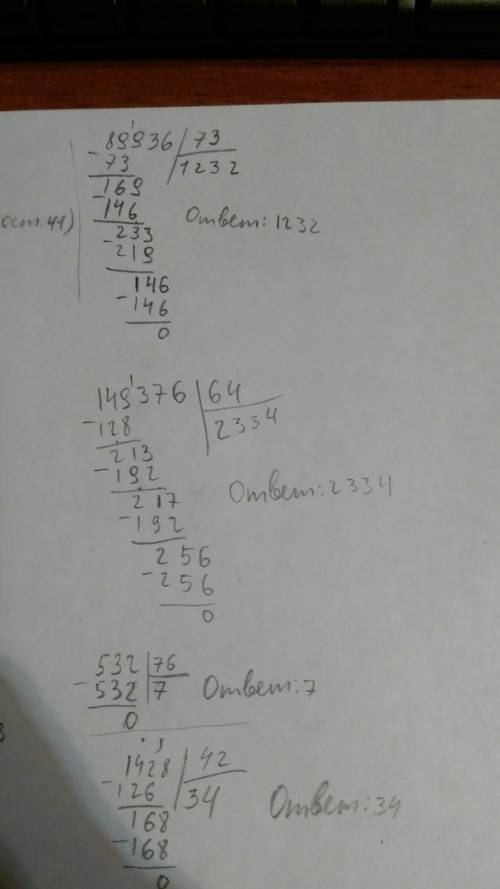 89936 73
- 73 1232
- 169
ост.41) 146 Ответ: 1232
233
- 219
146
- 146
0
149376 64
- 128 2334
213
- 192
217 Ответ: 2334
- 192
256
- 256
0
532 76
- 532 7 Ответ: 7
0
1428 42
- 126 34
168 Ответ: 34
- 168
0